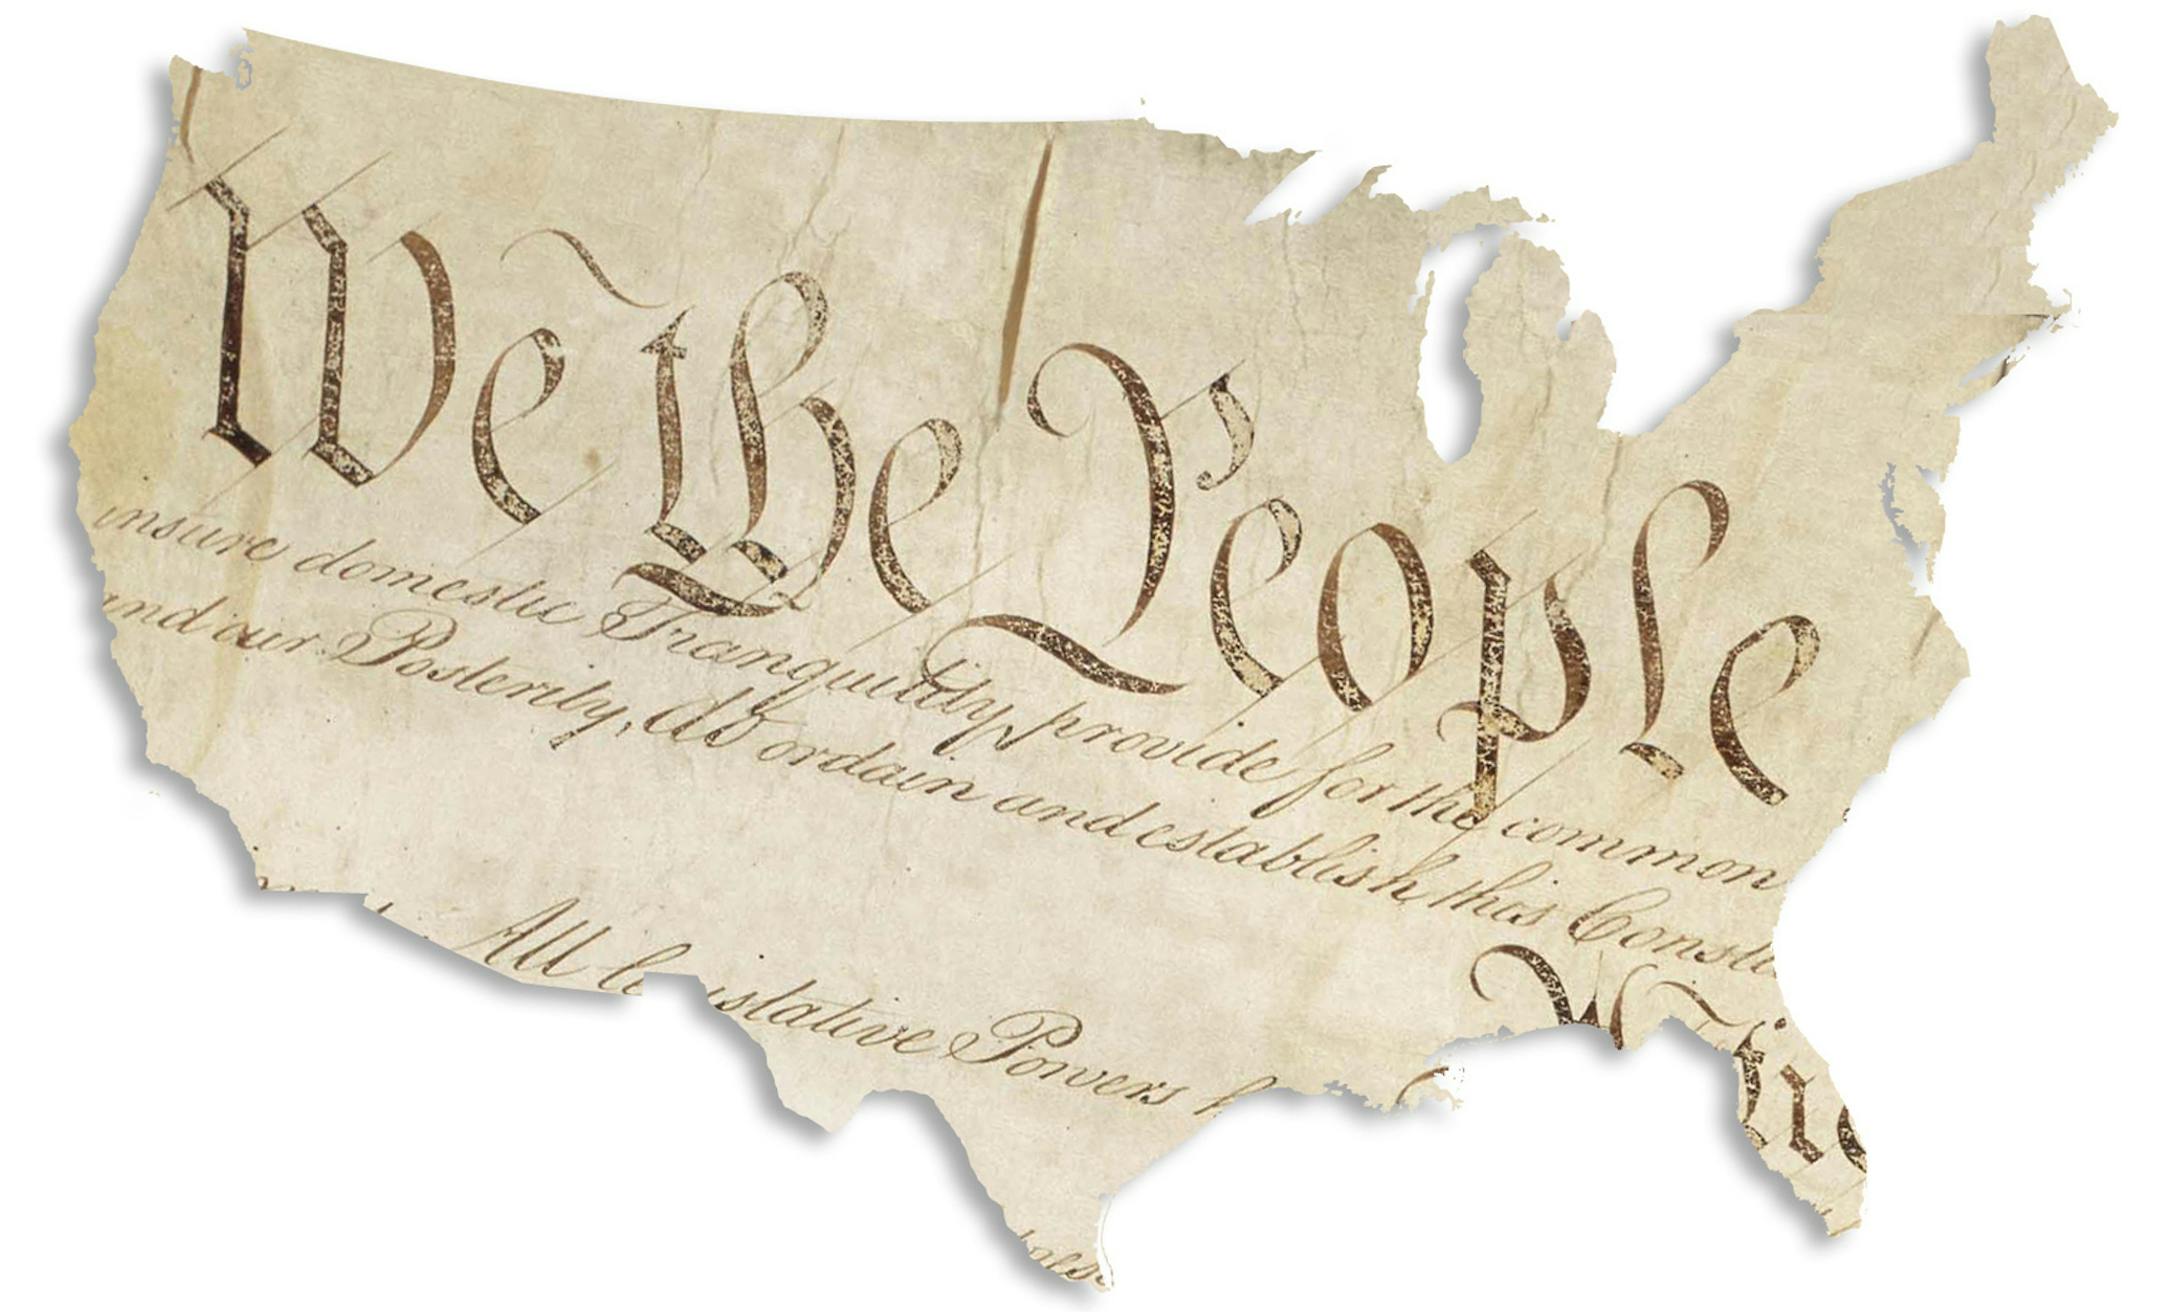 We the People
insure domestic Tranquility, provide for the common
and our Posterity, do ordain and establish this Constit
All le islative Powers h
Artic